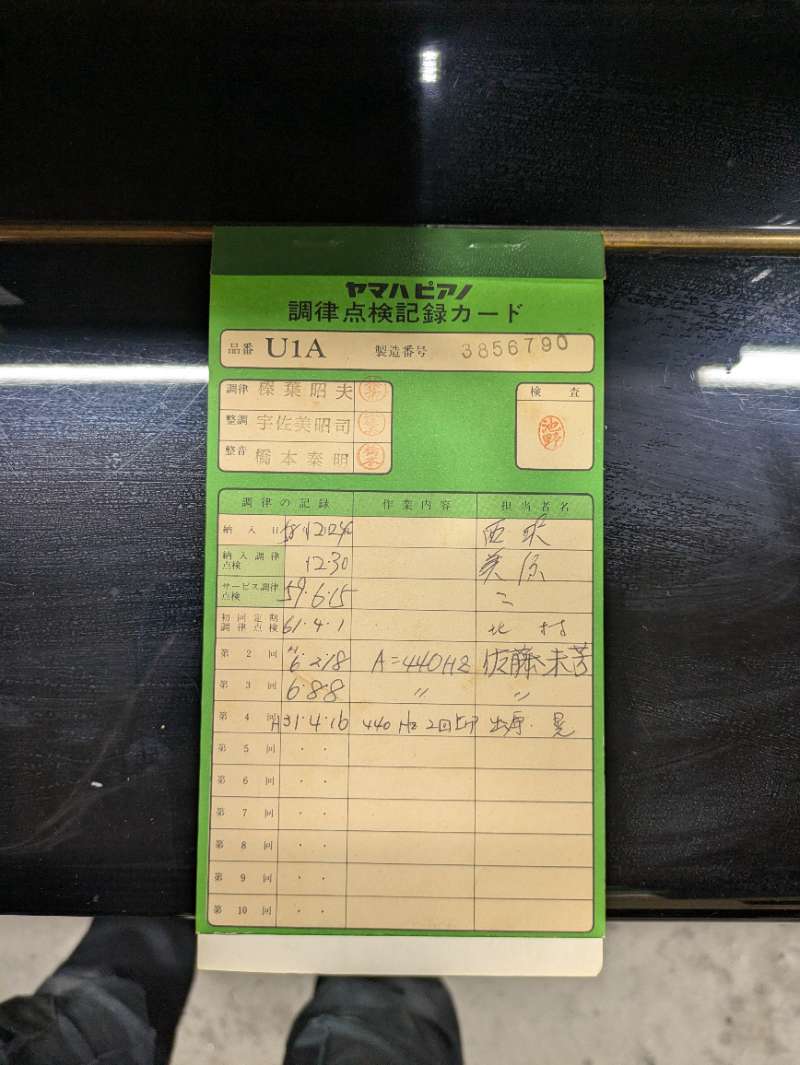 ヤマハピアノ
調律点検記録カード
品番 U1A 製造番号 3856790
調律 榛葉昭夫 検査
整調 宇佐美昭司 池野
整音 橋本泰明
調律の記録 作業内容 担当者名
納入日 58 12 24
納入調律点検 12.30
サービス調律点検 59.6.15
初回定期調律点検 61.4.1 北村
第2回 H6.2.18 A=440HZ 佐藤未芳
第3回 6.8.8 〃 〃
第4回 H31.4.16 440HZ 2回上げ
第5回 ・ ・
第6回 ・ ・
第7回 ・ ・
第8回 ・ ・
第9回 ・ ・
第10回 ・ ・